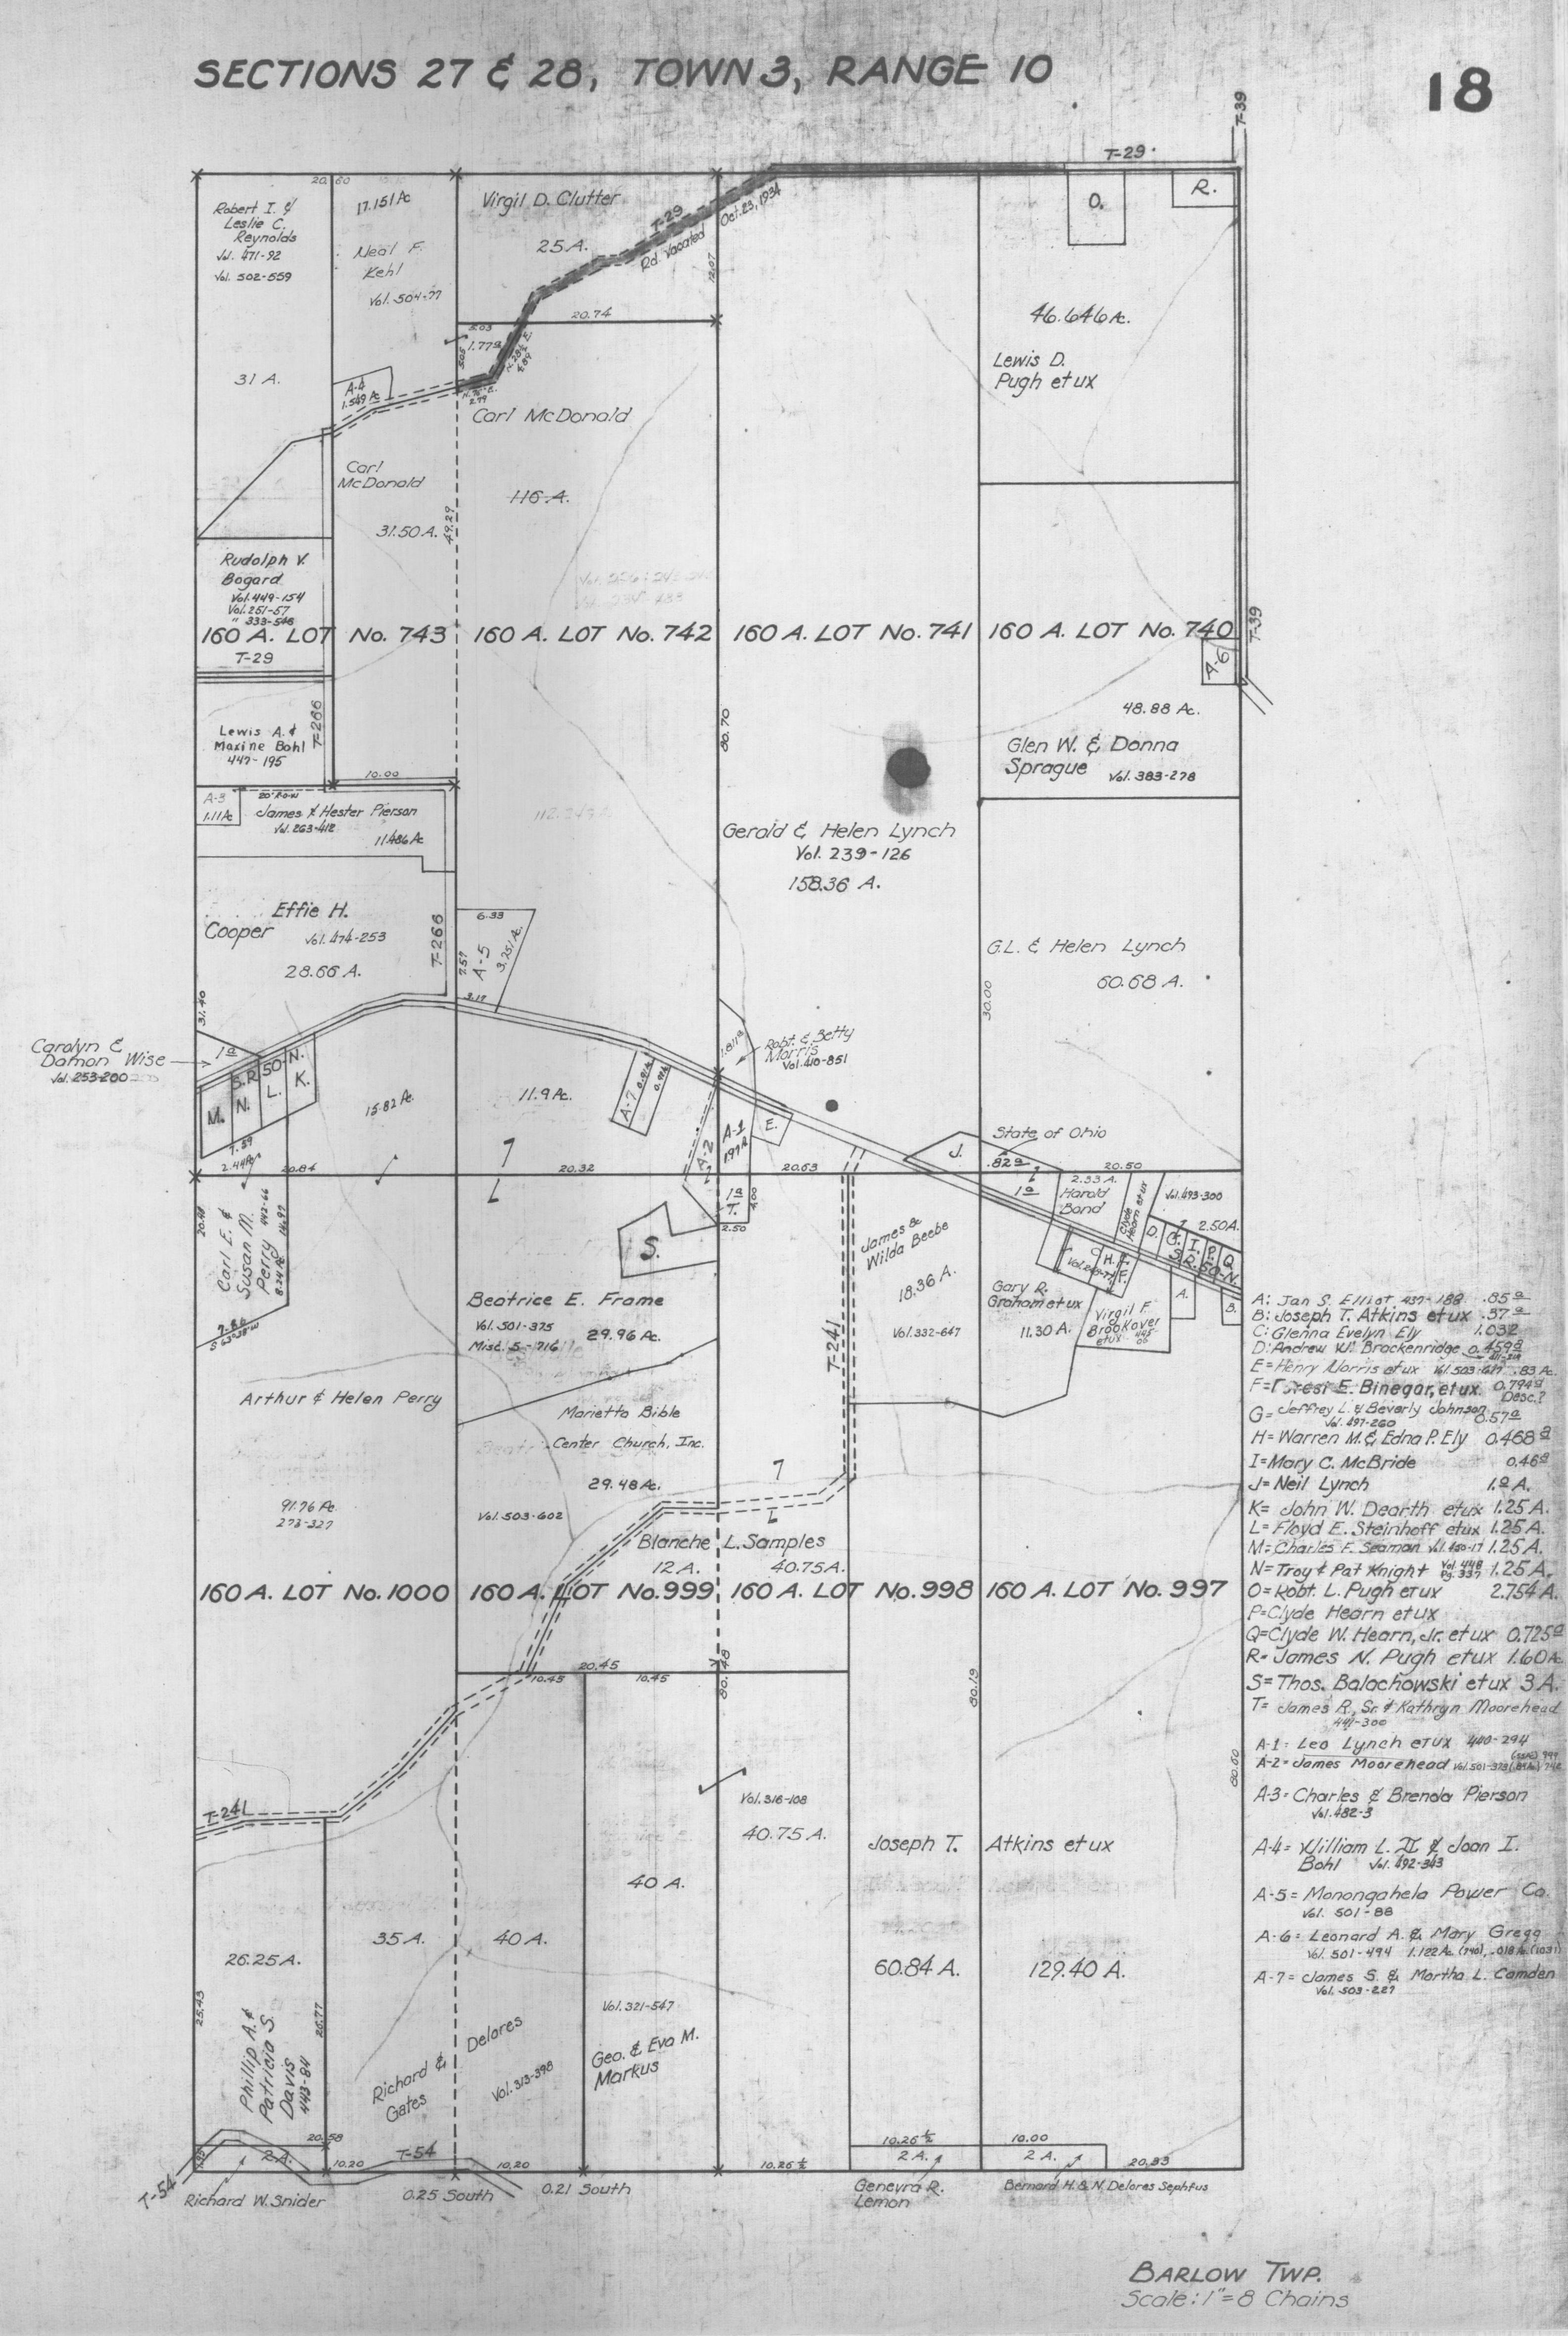 SECTIONS 27 & 28, TOWN 3, RANGE 10
18
T-39
T-29
20.60
Robert I. &
Leslie C.
Reynolds
Vol. 471-92
Vol. 502-559
31 A.
17.151 Ac
Neal F.
Kehl
Vol. 504-77
Virgil D. Clutter
25 A.
T-29
Rd. Vacated
Oct. 23, 1934
12.07
20.74
5.03
1.77 a
5.05
A-4
1.549 Ac
Carl McDonald
116 A.
Carl
McDonald
31.50 A.
49.29
O.
R.
46.646 Ac.
Lewis D.
Pugh et ux
Rudolph V.
Bogard
Vol. 449-154
Vol. 251-57
" 333-546
160 A. LOT No. 743
160 A. LOT No. 742
160 A. LOT No. 741
160 A. LOT No. 740
T-39
T-29
A-6
48.88 Ac.
Glen W. & Donna
Sprague Vol. 383-278
Lewis A. &
Maxine Bohl
447-195
T-266
80.70
10.00
A-3
1.11 Ac
20' R.O.W
James & Hester Pierson
Vol. 263-412
11.486 Ac
Gerald & Helen Lynch
Vol. 239-126
158.36 A.
Effie H.
Cooper Vol. 474-253
28.66 A.
T-266
6.33
7.57
A-5
3.251 Ac.
3.17
G.L. & Helen Lynch
60.68 A.
30.00
31.40
Carolyn &
Damon Wise
Vol. 253-200
1 a
S.R. 50-N.
M.
N.
L.
K.
7.59
2.44 Ac
15.82 Ac.
11.9 Ac.
A-7 0.91 Ac
1.811 a
Robt. & Betty
Morris
Vol. 410-851
A-2
A-1
1.97 A
E.
J.
State of Ohio
.82 a
20.84
20.32
20.63
20.50
20.48
Carl E. &
Susan M.
Perry 442-66
8.24 Ac
14.97
7.80
S.
1 a
T.
4.00
2.50
James &
Wilda Beebe
18.36 A.
Vol. 332-647
T-241
1 a
2.33 A.
Harold
Bond
Clyde
Hearn et ux
Vol. 493-300
2.50 A.
D.
G.
I.
P.
Q.
S.R. 50-N.
C.
H.
F.
A.
B.
Gary R.
Graham et ux
11.30 A.
Virgil F.
Brookover
et ux
Beatrice E. Frame
Vol. 501-375 29.96 Ac.
Misc. 5-716
Arthur & Helen Perry
91.76 Ac
273-327
Marietta Bible
Center Church, Inc.
29.48 Ac.
Vol. 503-602
Blanche L. Samples
12 A. 40.75 A.
160 A. LOT No. 1000
160 A. LOT No. 999
160 A. LOT No. 998
160 A. LOT No. 997
20.45
10.45
10.45
80.48
80.19
80.60
T-241
Vol. 316-108
40.75 A.
Joseph T. Atkins et ux
60.84 A.
129.40 A.
40 A.
26.25 A.
35 A.
40 A.
Phillip A. &
Patricia S.
Davis
443-84
25.43
26.77
Richard & Delores
Gates
Vol. 313-398
Vol. 321-547
Geo. & Eva M.
Markus
20.58
2 A.
10.20
T-54
10.20
10.26 ½
10.26 ½
2 A.
10.00
2 A.
20.33
T-54
Richard W. Snider
0.25 South
0.21 South
Genevra R.
Lemon
Bernard H. & N. Delores Sephfus
A: Jan S. Elliot 437-188 .85 a
B: Joseph T. Atkins et ux .37 a
C: Glenna Evelyn Ely 1.032
D: Andrew W. Brackenridge 0.459 a
E = Henry Morris et ux .83 Ac.
E. Binegar, et ux. 0.794 a
Desc.?
G = Jeffrey L. & Beverly Johnson 0.57 a
Vol. 497-260
H = Warren M. & Edna P. Ely 0.468 a
I = Mary C. McBride 0.46 a
J = Neil Lynch 1.0 A.
K = John W. Dearth et ux 1.25 A.
L = Floyd E. Steinhoff et ux 1.25 A.
M = Charles F. Seaman Vol. 450-17 1.25 A.
N = Troy & Pat Knight Vol. 448 Pg. 337 1.25 A.
O = Robt. L. Pugh et ux 2.754 A.
P = Clyde Hearn et ux
Q = Clyde W. Hearn, Jr. et ux 0.725 a
R = James N. Pugh et ux 1.60 Ac
S = Thos. Balachowski et ux 3 A.
T = James R., Sr. & Kathryn Moorehead
441-300
A-1 = Leo Lynch et ux 440-294
A-2 = James Moorehead
A-3 = Charles & Brenda Pierson
Vol. 482-3
A-4 = William L. II & Joan I.
Bohl Vol. 492-343
A-5 = Monongahela Power Co.
Vol. 501-88
A-6 = Leonard A. & Mary Gregg
Vol. 501-494 1.122 Ac. (740), .018 Ac. (1031)
A-7 = James S. & Martha L. Camden
Vol. 503-227
BARLOW TWP.
Scale: 1" = 8 Chains